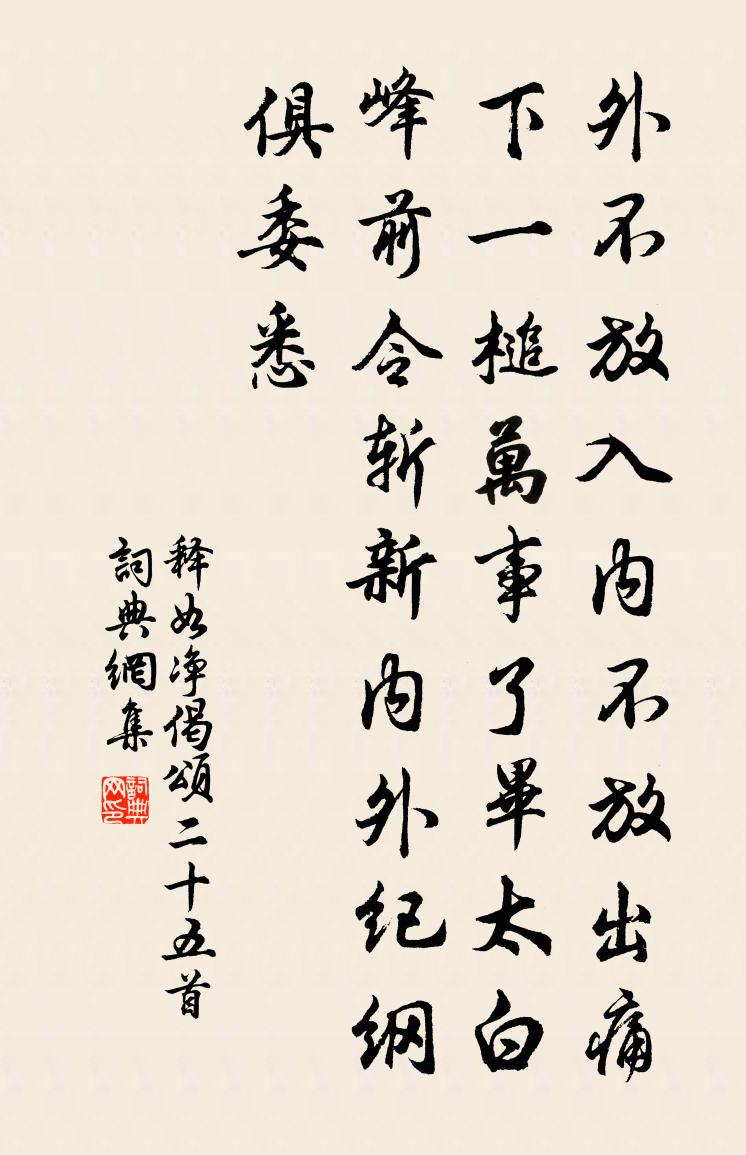 外不放入内不放出痛
下一槌萬事了畢太白
峰前令斬新内外纪纲
俱委悉
释如净偈頌二十五首
詞典網集
詞典网印